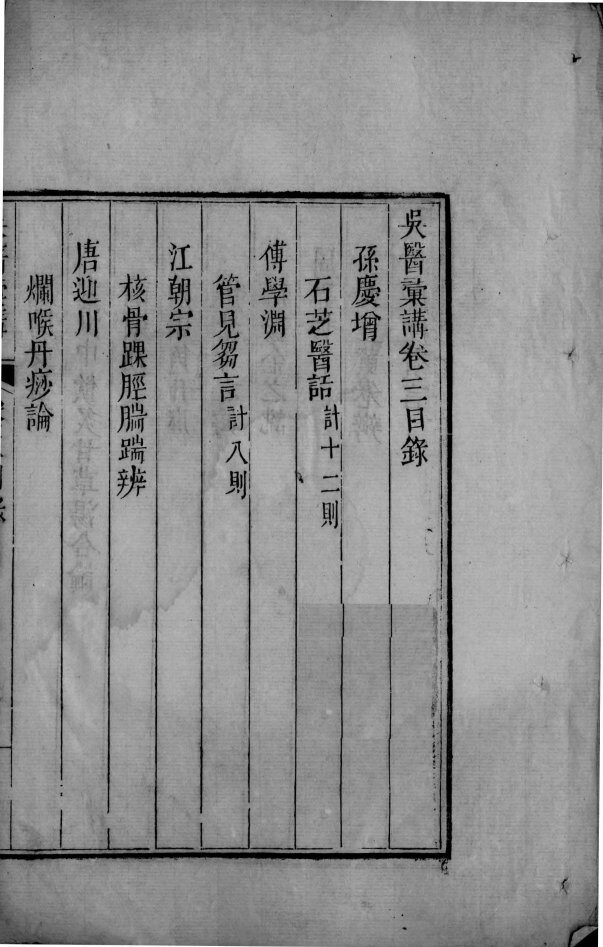 吳醫彙講卷三目錄
孫慶增
石芝醫話計十二則
傅學淵
管見芻言計八則
江朝宗
核骨踝脛腨踹辨
唐迎川
爛喉丹痧論